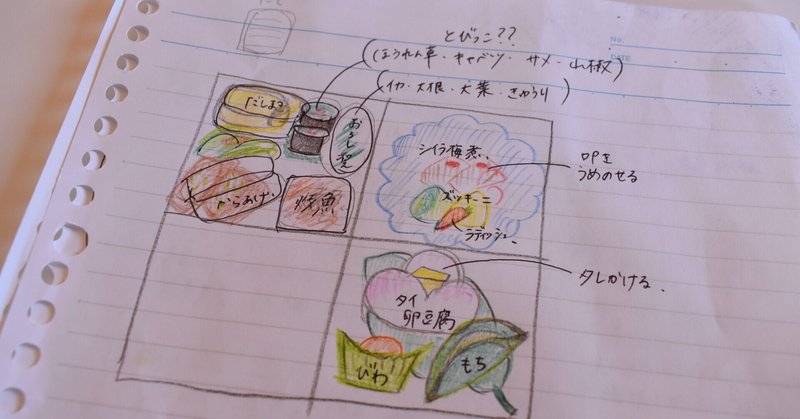 No.
DATE
とびっこ??
(ほうれん草・キャベツ・サメ・山椒)
(イカ・大根・大葉・きゅうり)
だしまき
からあげ
焼魚
シイラ梅煮
うめのせる
ズッキーニ
ラディッシュ
タレかける。
タイ
卵豆腐
びわ
もち